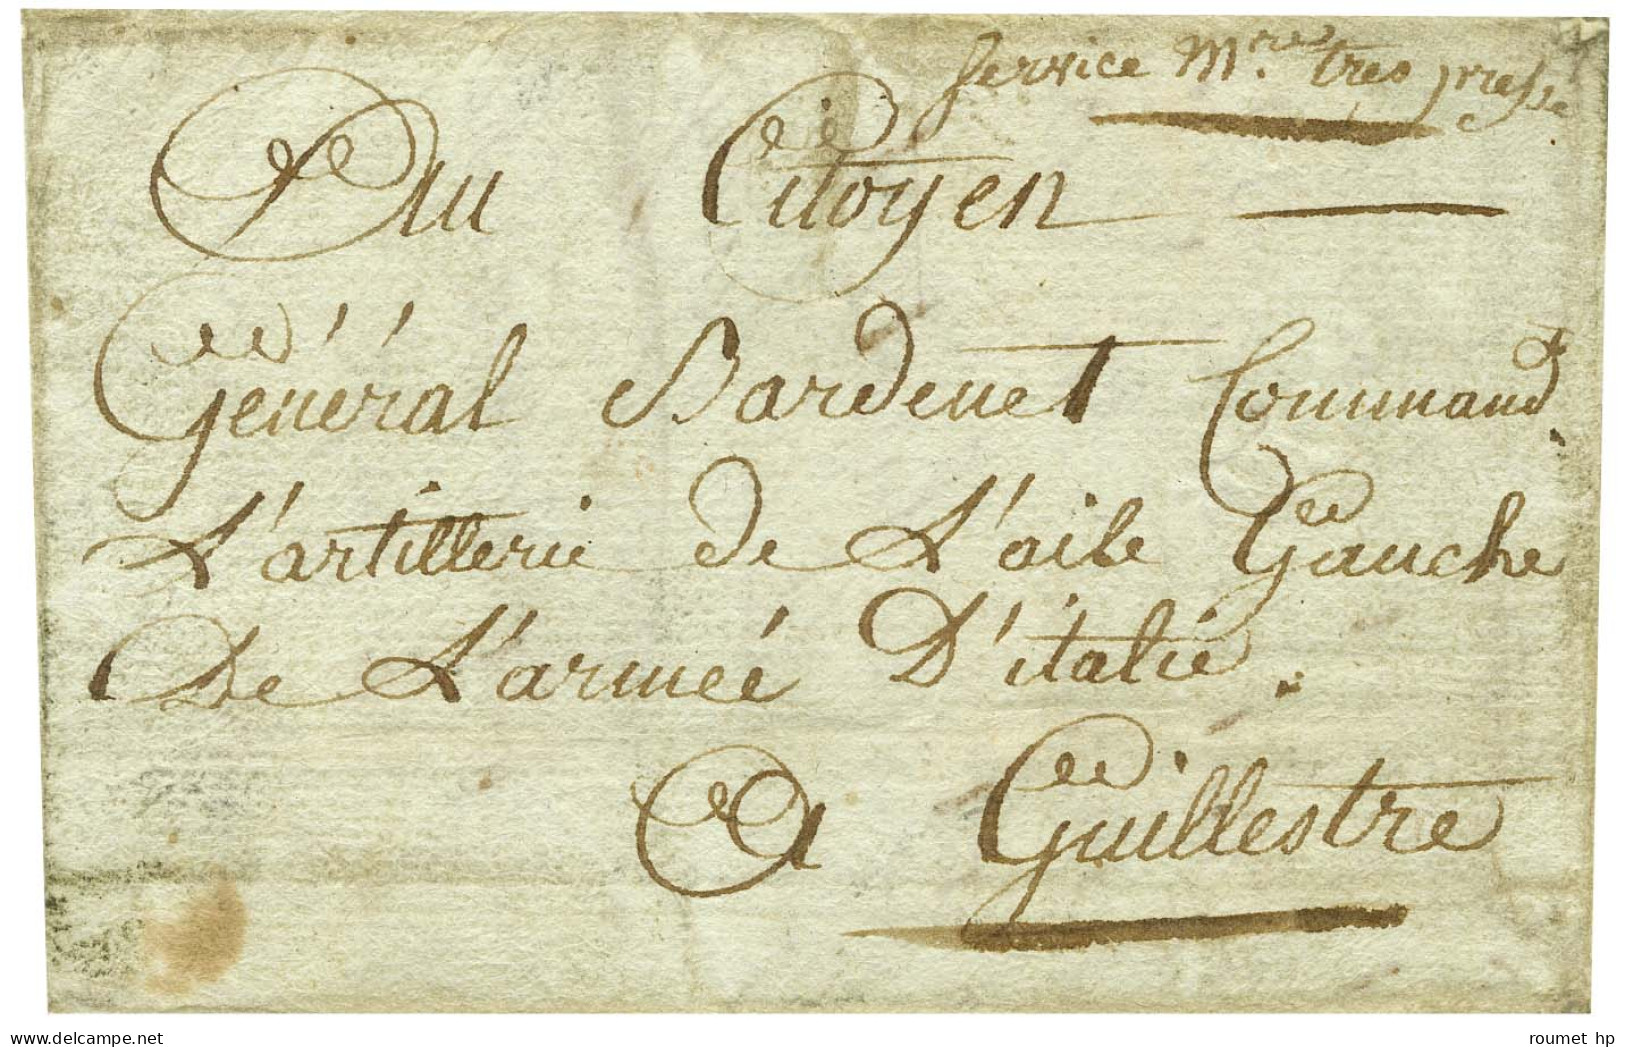 Service Mre tres pressé
Au Citoyen
Général Bardenet Command.t
L'artillerie de L'aile Gauche
De L'armeé D'italie.
A Guillestre
delcampe.net
roumet hp